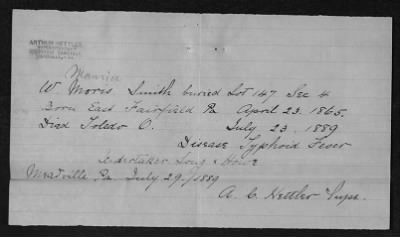 ARTHUR NETTLER
Maurice
W. Morris Smith buried Lot 147 Sec 4
Born East Fairfield Pa April 23. 1865.
Died Toledo O. July 23 1889
Disease Typhoid Fever
Undertaker Long & Howe
Meadville Pa. July 29/1889
A. C. Nettler Supt.